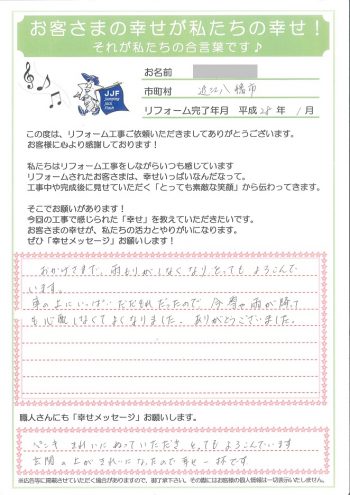 お客さまの幸せが私たちの幸せ！
それが私たちの合言葉です♪
JJF
Jumping
Jack
Flash
お名前
市町村 近江八幡市
リフォーム完了年月 平成 28 年 1 月
この度は、リフォーム工事ご依頼いただきましてありがとうございます。
お客様に心より感謝しております！
私たちはリフォーム工事をしながらいつも感じています
リフォームされたお客さまは、幸せいっぱいなんだなって。
工事中や完成後に見せていただく「とっても素敵な笑顔」から伝わってきます。
そこでお願いがあります！
今回の工事で感じられた「幸せ」を教えていただきたいです。
お客さまの幸せが、私たちの活力とやりがいになります。
ぜひ「幸せメッセージ」お願いします！
おかげさまで、雨もりがしなくなりとってもよろこんで
います。
車の上にいっぱい だったので 今春や雨が降って
も心配しなくてよくなりました。ありがとうございました。
職人さんにも「幸せメッセージ」お願いします。
ペンキ きれいにぬっていただき とってもよろこんでいます
玄関の上がきれいになったので幸せ一杯です
※広告等に掲載させていただく場合がありますので、御了承下さい。その際にはお客様の個人情報は一切表示いたしません。